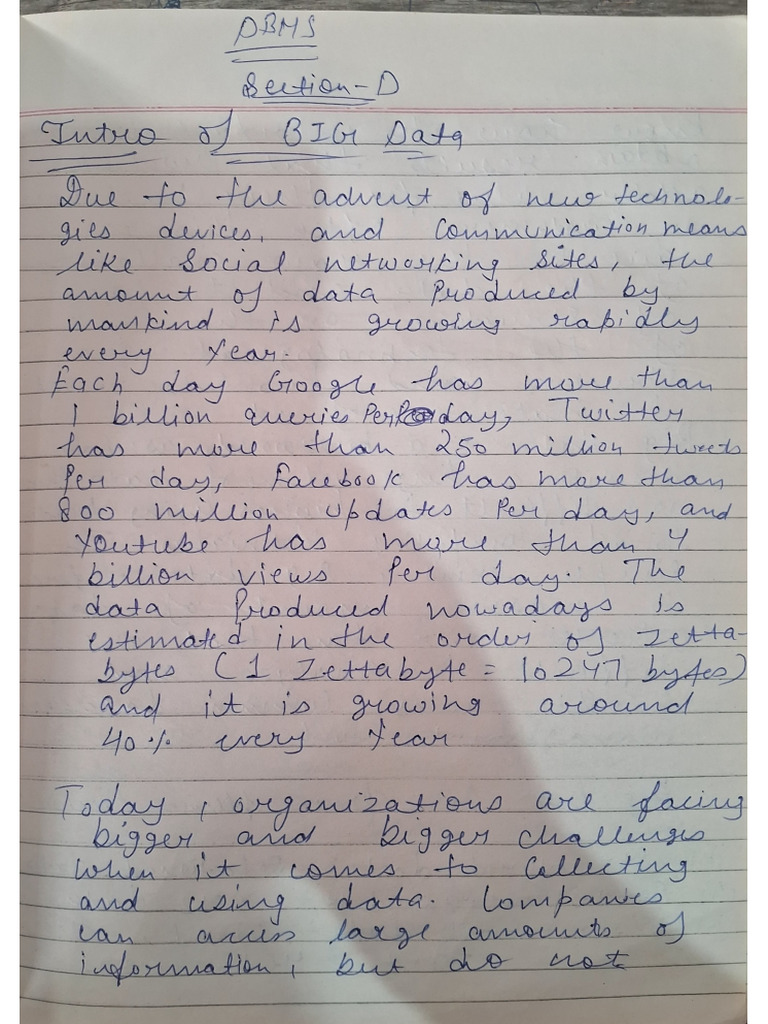 DBMS
Section-D
Intro of BIG Data
Due to the advent of new technolo-
gies devices, and Communication means
like Social networking Sites, the
amount of data Produced by
mankind is growing rapidly
every Year.
Each day Google has more than
1 billion queries Per day, Twitter
has more than 250 million tweets
Per day, Facebook has more than
800 million updates Per day, and
Youtube has more than 4
billion views Per day. The
data Produced nowadays is
estimated in the order of Zetta-
bytes (1 Zettabyte = 10247 bytes)
and it is growing around
40% every Year
Today, organizations are facing
bigger and bigger challenges
When it comes to Collecting
and using data. Companies
can acces large amounts of
information, but do not